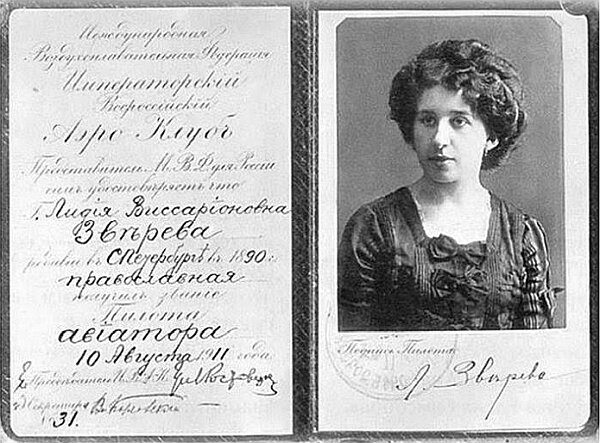 Международная
Воздухоплавательная Федерация
Императорскій
Всероссійскій
Аэро Клубъ
Представитель М. В. Ф. для Россіи
симъ удостовѣряетъ что
Г. Лидія Виссаріоновна
Звѣрева
родивш въ С Петербургѣ въ 1890 г.
православная
получилъ званіе
Пилота
авіатора
10 Августа 1911 года.
Предсѣдатель
Секретарь
31.
Подпись Пилота
Л Звѣрева